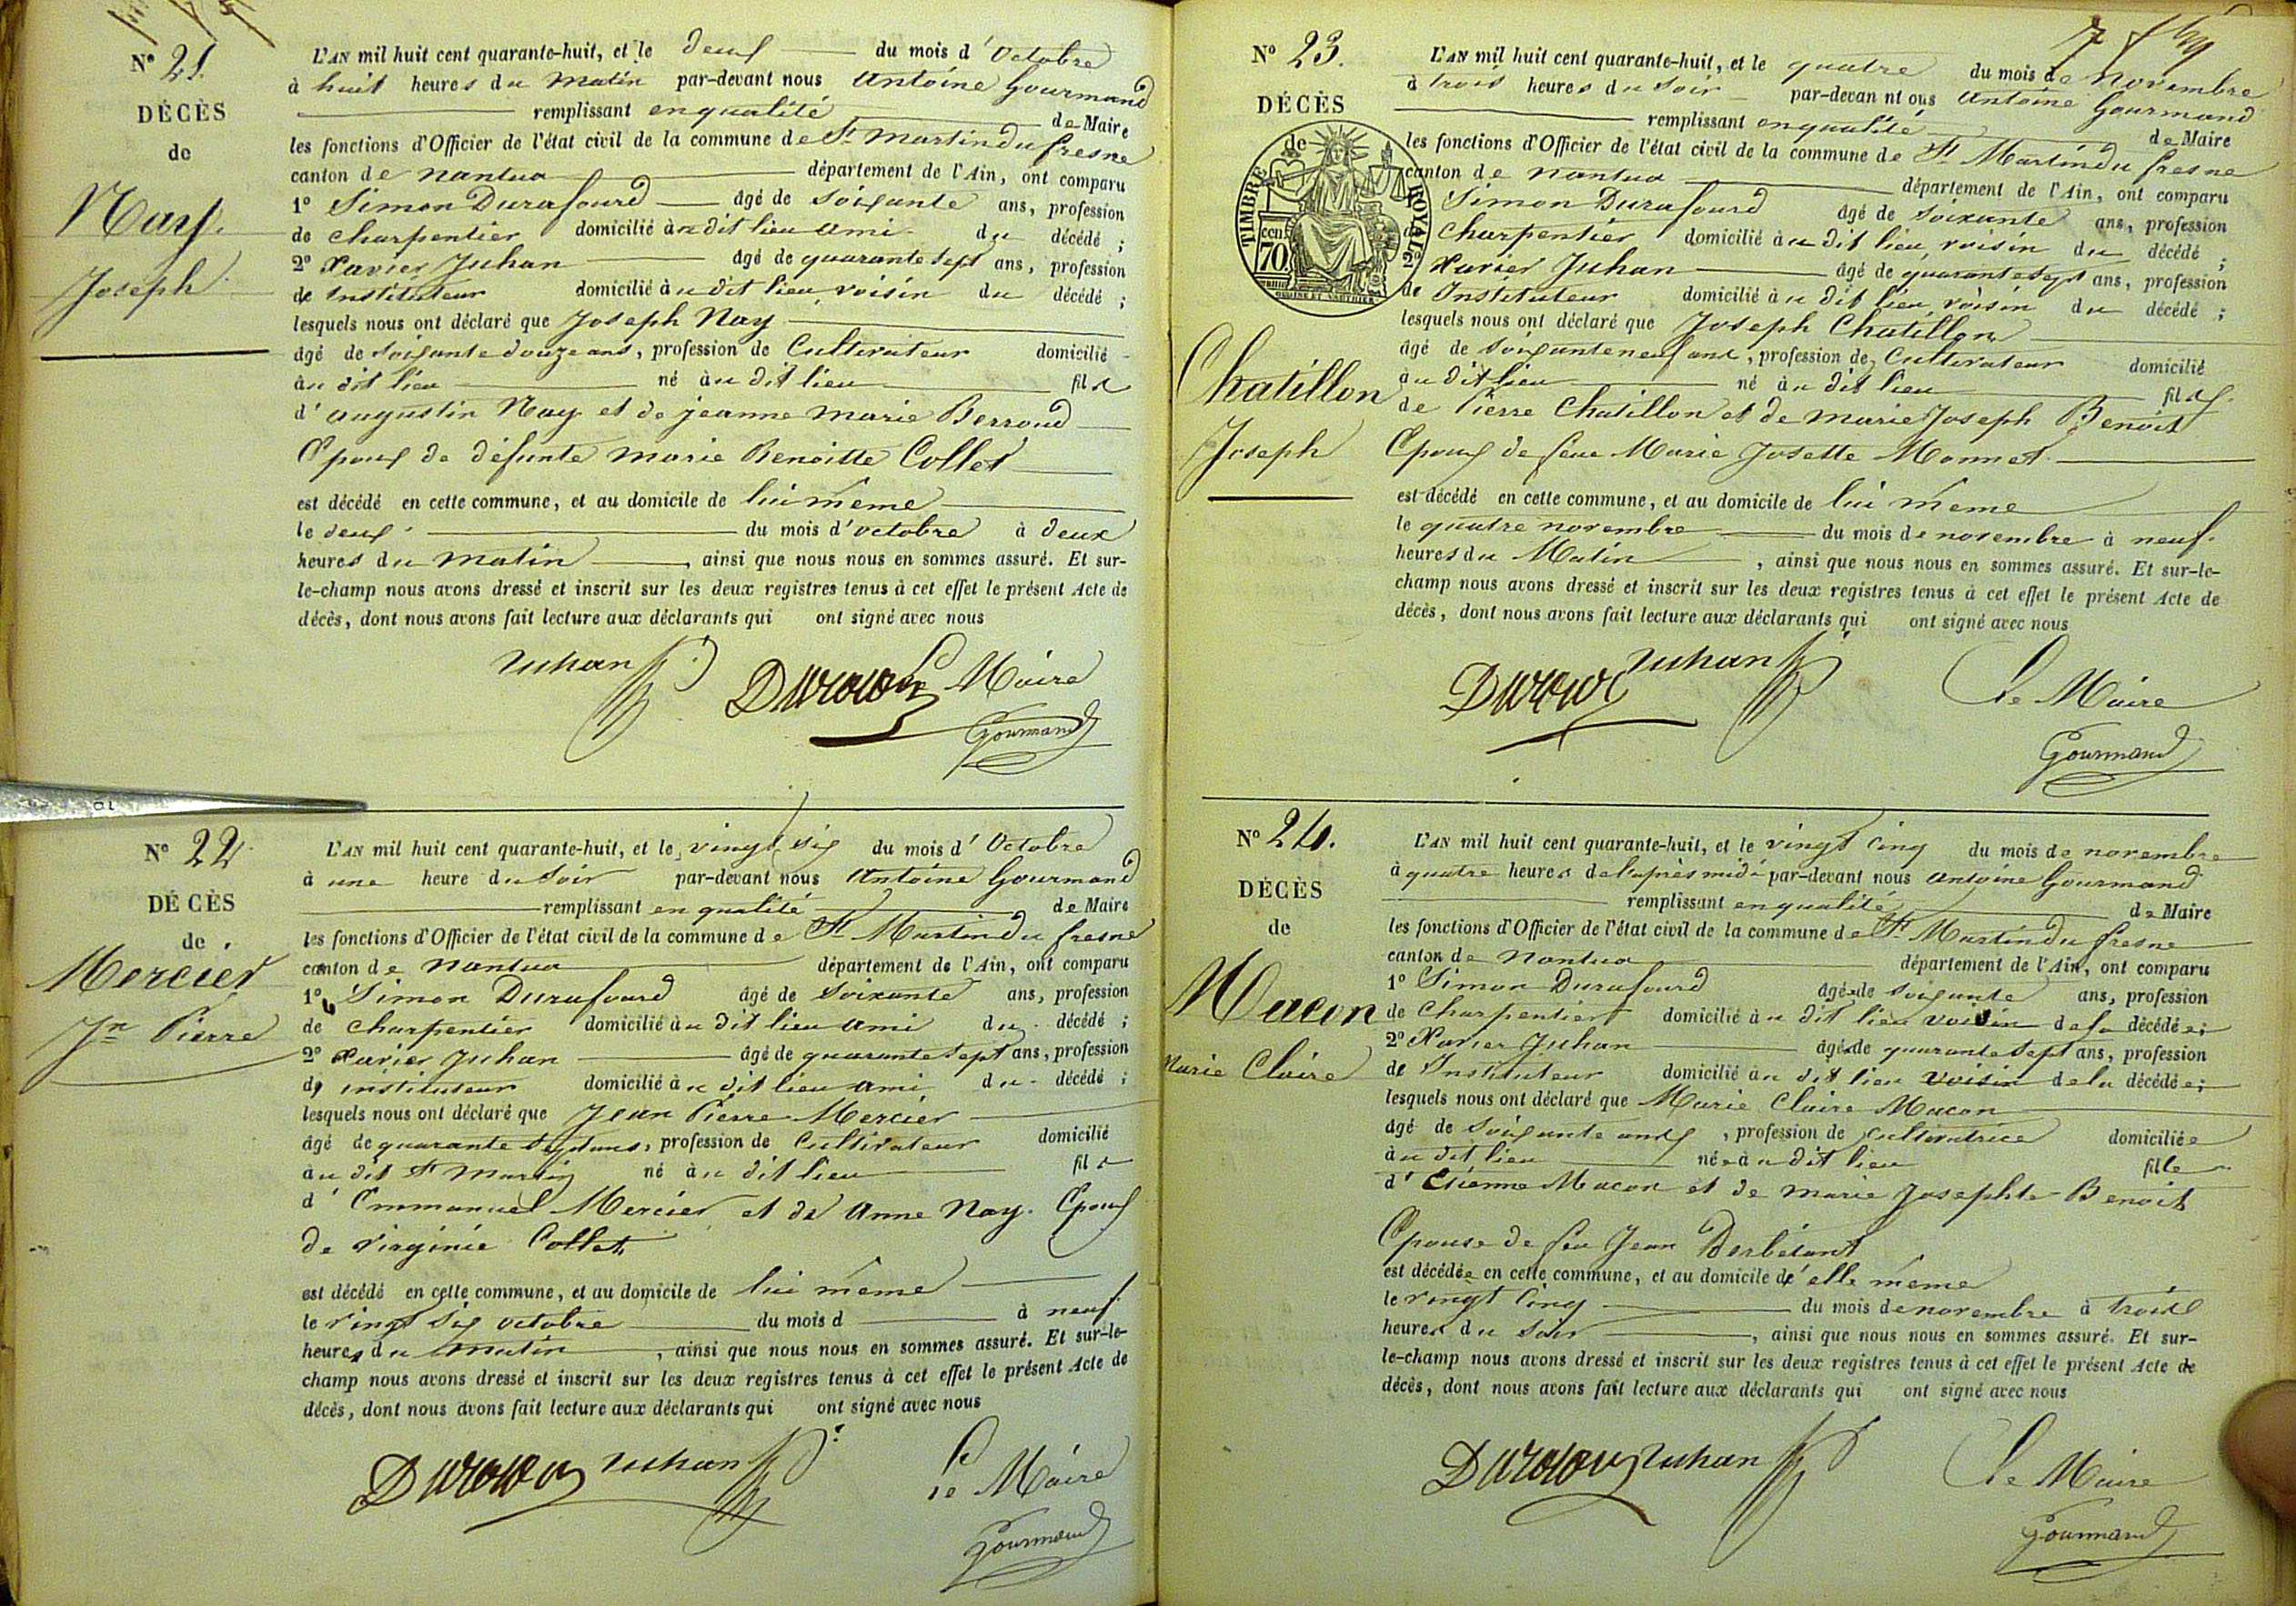 N° 21.
DÉCÈS
de
Nay.
Joseph
L'AN mil huit cent quarante-huit, et le deux du mois d'Octobre
à huit heures du matin par-devant nous Antoine Gourmand
remplissant en qualité de Maire
les fonctions d'Officier de l'état civil de la commune de St Martin du fresne
canton de nantua département de l'Ain, ont comparu
1° Simon Durafourd âgé de soixante ans, profession
de charpentier domicilié au dit lieu ami du décédé ;
2° Xavier Juhan âgé de quarante sept ans, profession
de Instituteur domicilié au dit lieu, voisin du décédé ;
lesquels nous ont déclaré que Joseph Nay
âgé de soixante douze ans, profession de Cultivateur domicilié
au dit lieu né au dit lieu fils
d'augustin Nay et de jeanne marie Berroud
Epoux de défunte marie Benoitte Collet
est décédé en cette commune, et au domicile de lui même
le deux du mois d'octobre à deux
heures du matin, ainsi que nous nous en sommes assuré. Et sur-
le-champ nous avons dressé et inscrit sur les deux registres tenus à cet effet le présent Acte de
décès, dont nous avons fait lecture aux déclarants qui ont signé avec nous
Juhan Le Maire
Gourmand
N° 22
DÉCÈS
de
Mercier
Jn Pierre
L'AN mil huit cent quarante-huit, et le vingt six du mois d'Octobre
à une heure du soir par-devant nous Antoine Gourmand
remplissant en qualité de Maire
les fonctions d'Officier de l'état civil de la commune de St Martin du fresne
canton de nantua département de l'Ain, ont comparu
1° Simon Durafourd âgé de soixante ans, profession
de charpentier domicilié au dit lieu ami du décédé ;
2° Xavier Juhan âgé de quarante sept ans, profession
de instituteur domicilié au dit lieu ami du décédé ;
lesquels nous ont déclaré que Jean Pierre Mercier
âgé de quarante sept ans, profession de Cultivateur domicilié
au dit St Martin né au dit lieu fils
d'Emmanuel Mercier et de Anne Nay. Epoux
de virginie Collet
est décédé en cette commune, et au domicile de lui même
le vingt six octobre du mois d à neuf
heures du matin, ainsi que nous nous en sommes assuré. Et sur-le-
champ nous avons dressé et inscrit sur les deux registres tenus à cet effet le présent Acte de
décès, dont nous avons fait lecture aux déclarants qui ont signé avec nous
Juhan Le Maire
Gourmand
N° 23.
DÉCÈS
de
TIMBRE ROYAL
70 cent
Chatillon
Joseph
L'AN mil huit cent quarante-huit, et le quatre du mois de novembre
à trois heures du soir par-devan nt ous Antoine Gourmand
remplissant en qualité de Maire
les fonctions d'Officier de l'état civil de la commune de St Martin du fresne
canton de nantua département de l'Ain, ont comparu
Simon Durafourd âgé de soixante ans, profession
de Charpentier domicilié au dit lieu, voisin du décédé ;
2° Xavier Juhan âgé de quarante sept ans, profession
de Instituteur domicilié au dit lieu, voisin du décédé ;
lesquels nous ont déclaré que Joseph Chatillon
âgé de soixante neuf ans, profession de Cultivateur domicilié
au dit lieu né au dit lieu fils
de Pierre Chatillon et de marie Joseph Benoit
Epoux de feue Marie Josette Monnet
est décédé en cette commune, et au domicile de lui même
le quatre novembre du mois de novembre à neuf
heures du Matin, ainsi que nous nous en sommes assuré. Et sur-le-
champ nous avons dressé et inscrit sur les deux registres tenus à cet effet le présent Acte de
décès, dont nous avons fait lecture aux déclarants qui ont signé avec nous
Juhan Le Maire
Gourmand
N° 24.
DÉCÈS
de
Macon
Marie Claire
L'AN mil huit cent quarante-huit, et le vingt cinq du mois de novembre
à quatre heures de l'après midi par-devant nous Antoine Gourmand
remplissant en qualité de Maire
les fonctions d'Officier de l'état civil de la commune de St Martin du fresne
canton de Nantua département de l'Ain, ont comparu
1° Simon Durafourd âgé de soixante ans, profession
de Charpentier domicilié au dit lieu voisin de la décédée ;
2° Xavier Juhan âgé de quarante sept ans, profession
de Instituteur domicilié au dit lieu voisin de la décédée ;
lesquels nous ont déclaré que Marie Claire Macon
âgé de soixante ans, profession de cultivatrice domiciliée
au dit lieu née au dit lieu fille
d'Etienne Macon et de marie Josephte Benoit
Epouse de feu Jean
est décédée en cette commune, et au domicile d'elle même
le vingt cinq du mois de novembre à trois
heures du soir, ainsi que nous nous en sommes assuré. Et sur-
le-champ nous avons dressé et inscrit sur les deux registres tenus à cet effet le présent Acte de
décès, dont nous avons fait lecture aux déclarants qui ont signé avec nous
Juhan Le Maire
Gourmand